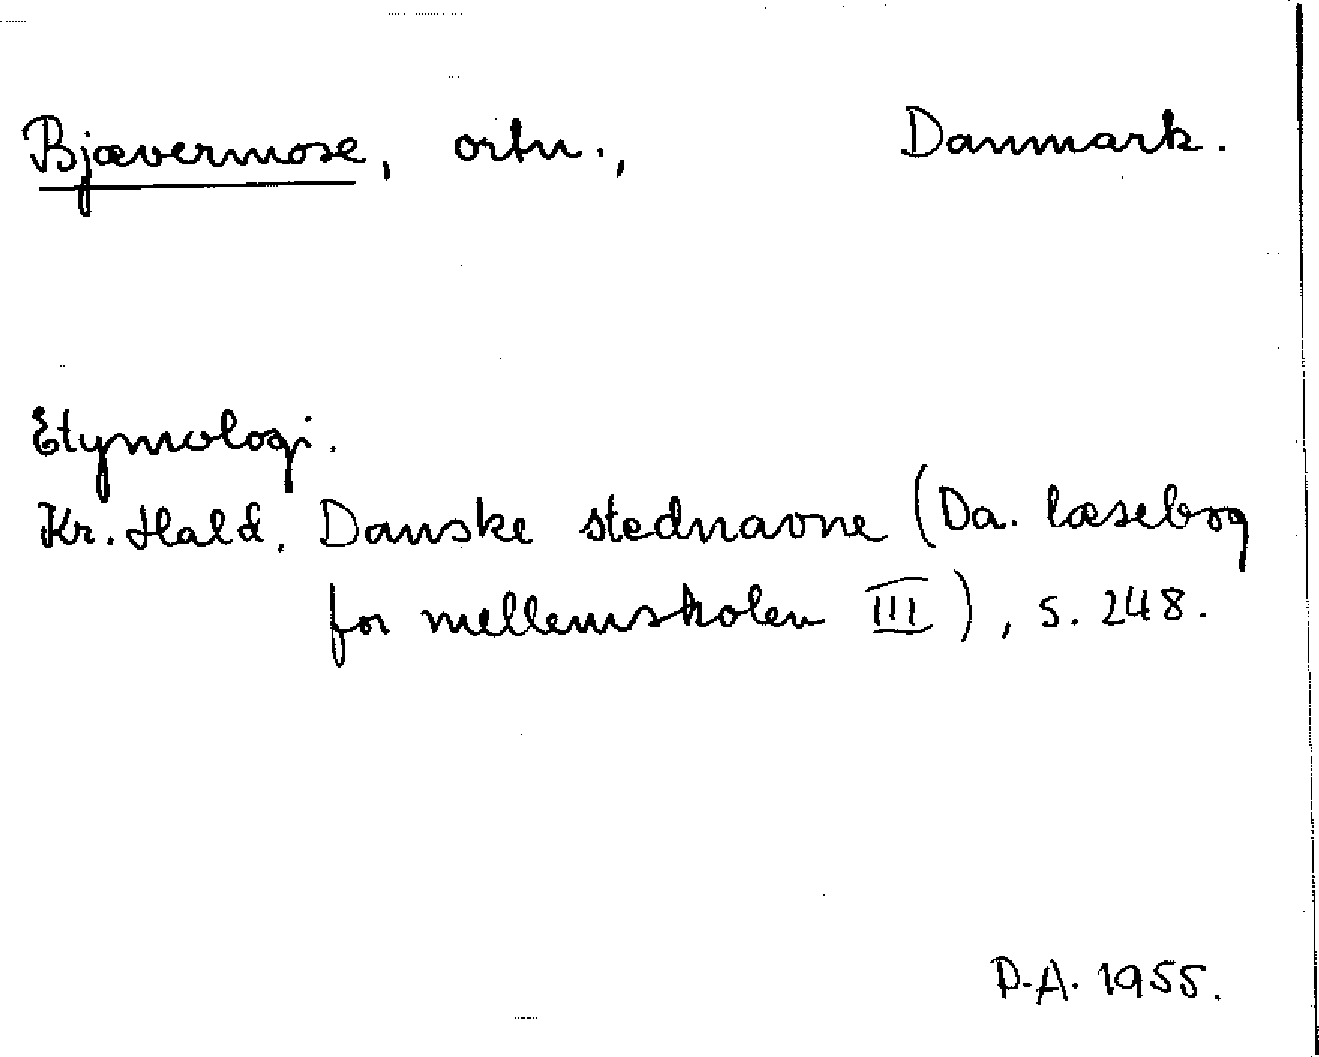 Bjævermose, ortn., Danmark.
Etymologi.
Kr. Hald, Danske stednavne (Da. læsebog
for mellemskolen III), s. 248.
D.A. 1955.